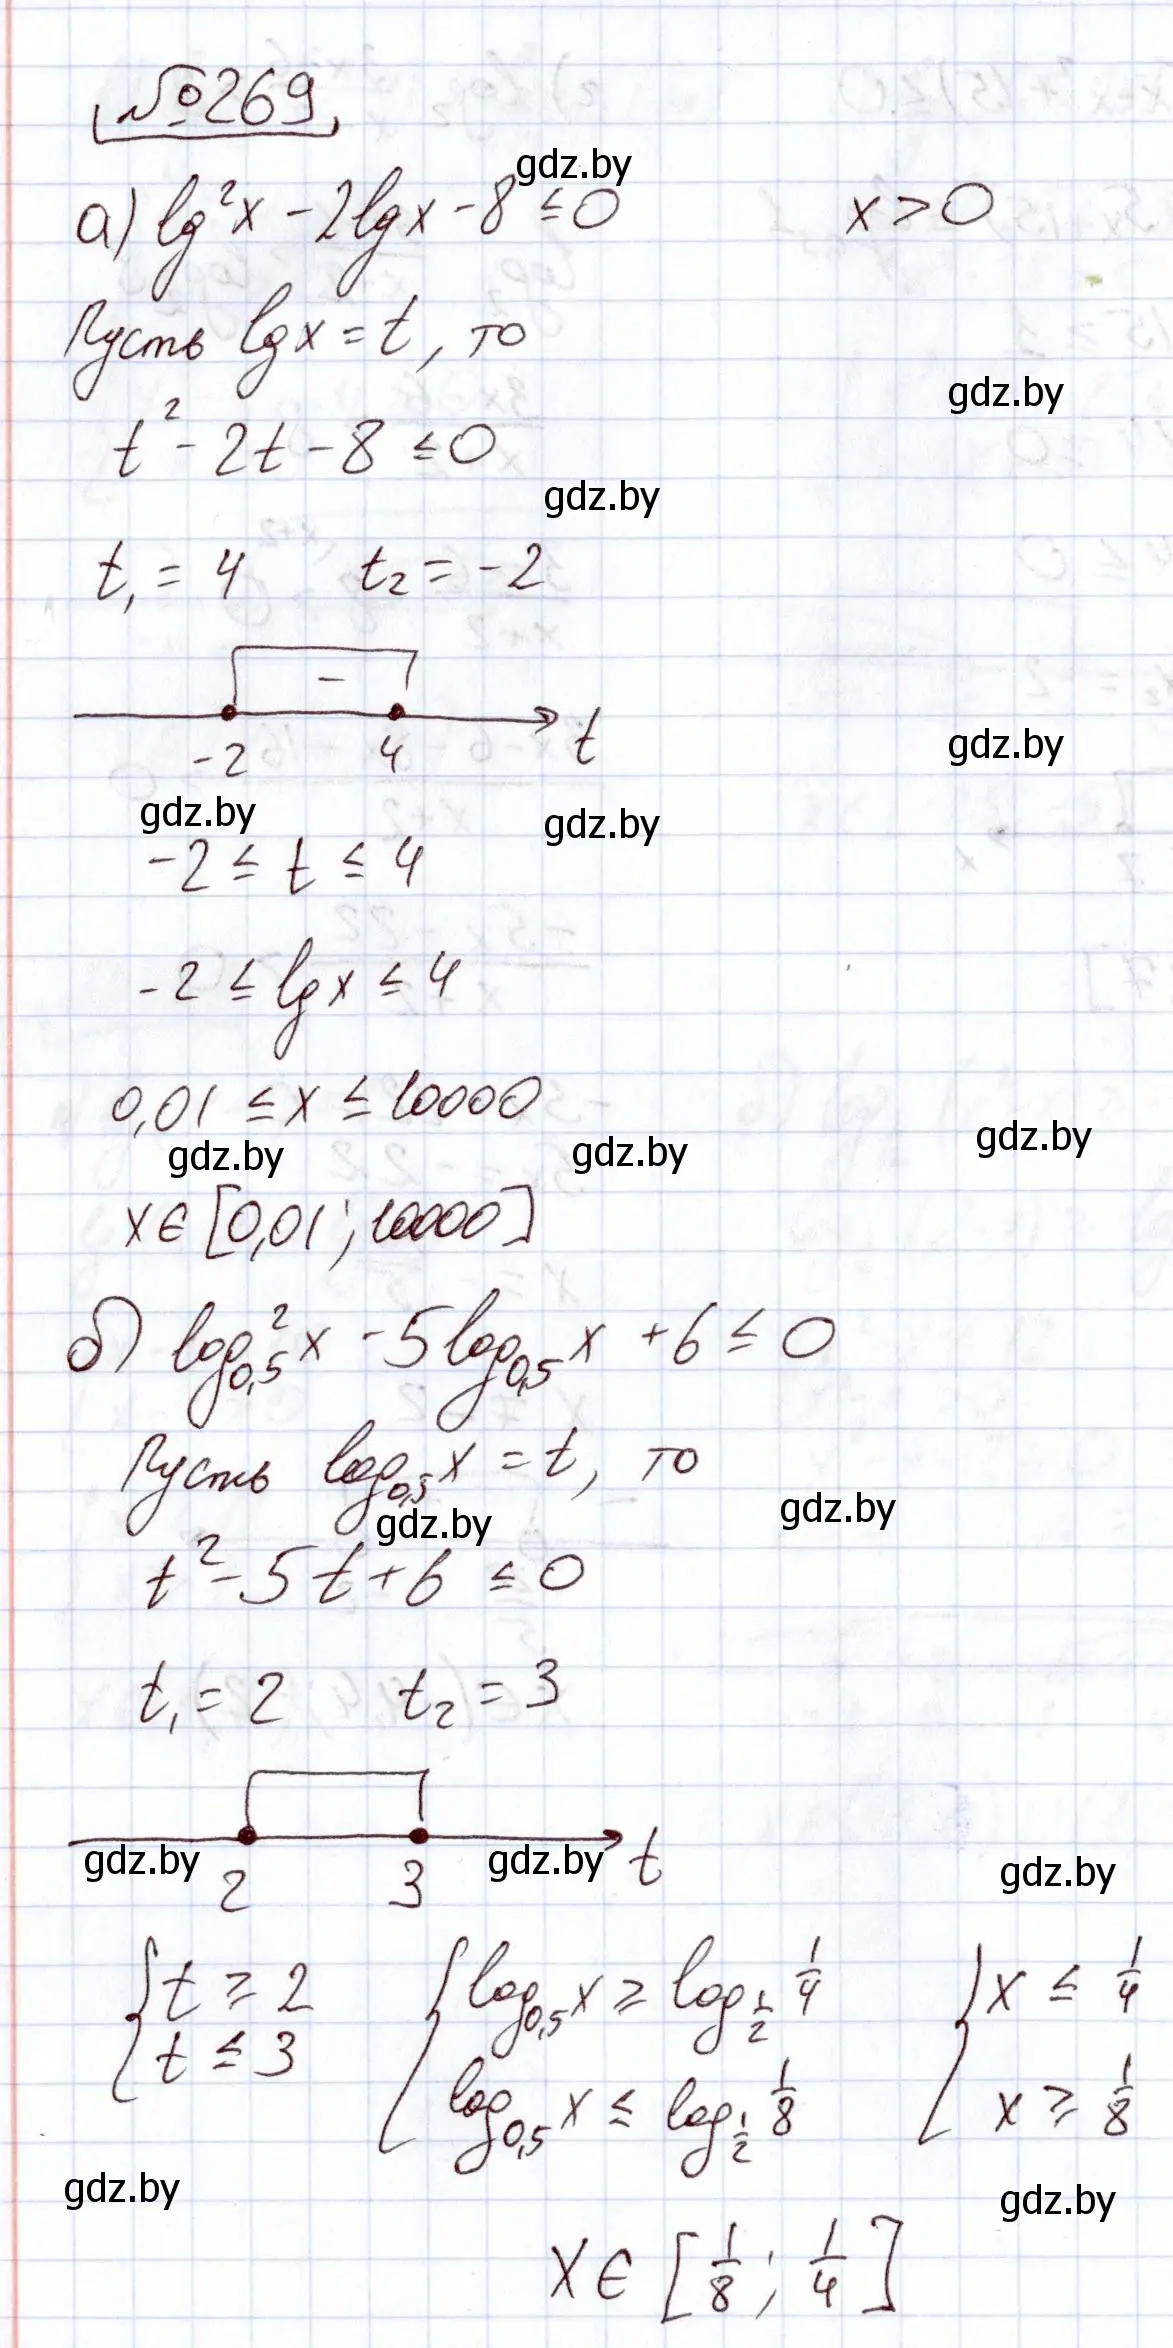 №269
gdz.by
а) lg²x - 2lgx - 8 ≤ 0 x > 0
Пусть lgx = t, то
gdz.by
t² - 2t - 8 ≤ 0
gdz.by
t₁ = 4 t₂ = -2
-
-2 4 t
gdz.by
gdz.by gdz.by
-2 ≤ t ≤ 4
-2 ≤ lgx ≤ 4
0,01 ≤ x ≤ 10000
gdz.by gdz.by gdz.by
x ∈ [0,01; 10000]
б) log²₀,₅x - 5log₀,₅x + 6 ≤ 0
Пусть log₀,₅x = t, то
gdz.by gdz.by
t² - 5t + 6 ≤ 0
t₁ = 2 t₂ = 3
gdz.by gdz.by gdz.by
2 3 t
{ t ≥ 2 { log₀,₅x ≥ log_{1/2} 1/4 { x ≤ 1/4
t ≤ 3 log₀,₅x ≤ log_{1/2} 1/8 x ≥ 1/8
gdz.by gdz.by
x ∈ [1/8; 1/4]